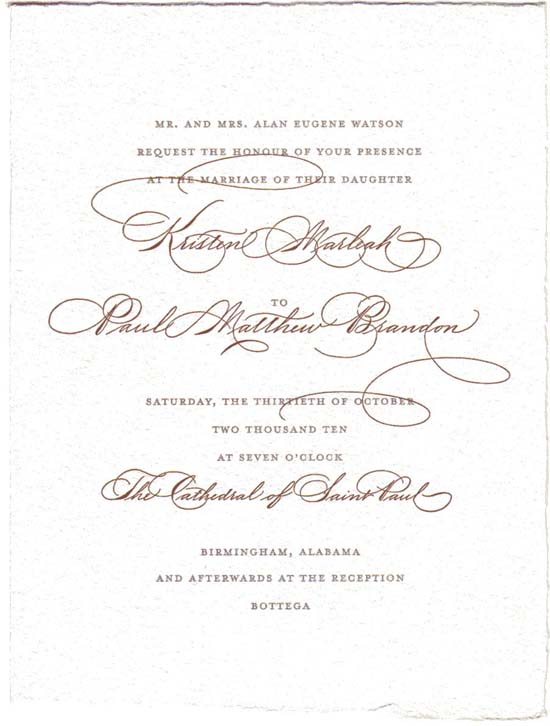 MR. AND MRS. ALAN EUGENE WATSON
REQUEST THE HONOUR OF YOUR PRESENCE
AT THE MARRIAGE OF THEIR DAUGHTER
Kristen Marleah
TO
Paul Matthew Brandon
SATURDAY, THE THIRTIETH OF OCTOBER
TWO THOUSAND TEN
AT SEVEN O'CLOCK
The Cathedral of Saint Paul
BIRMINGHAM, ALABAMA
AND AFTERWARDS AT THE RECEPTION
BOTTEGA